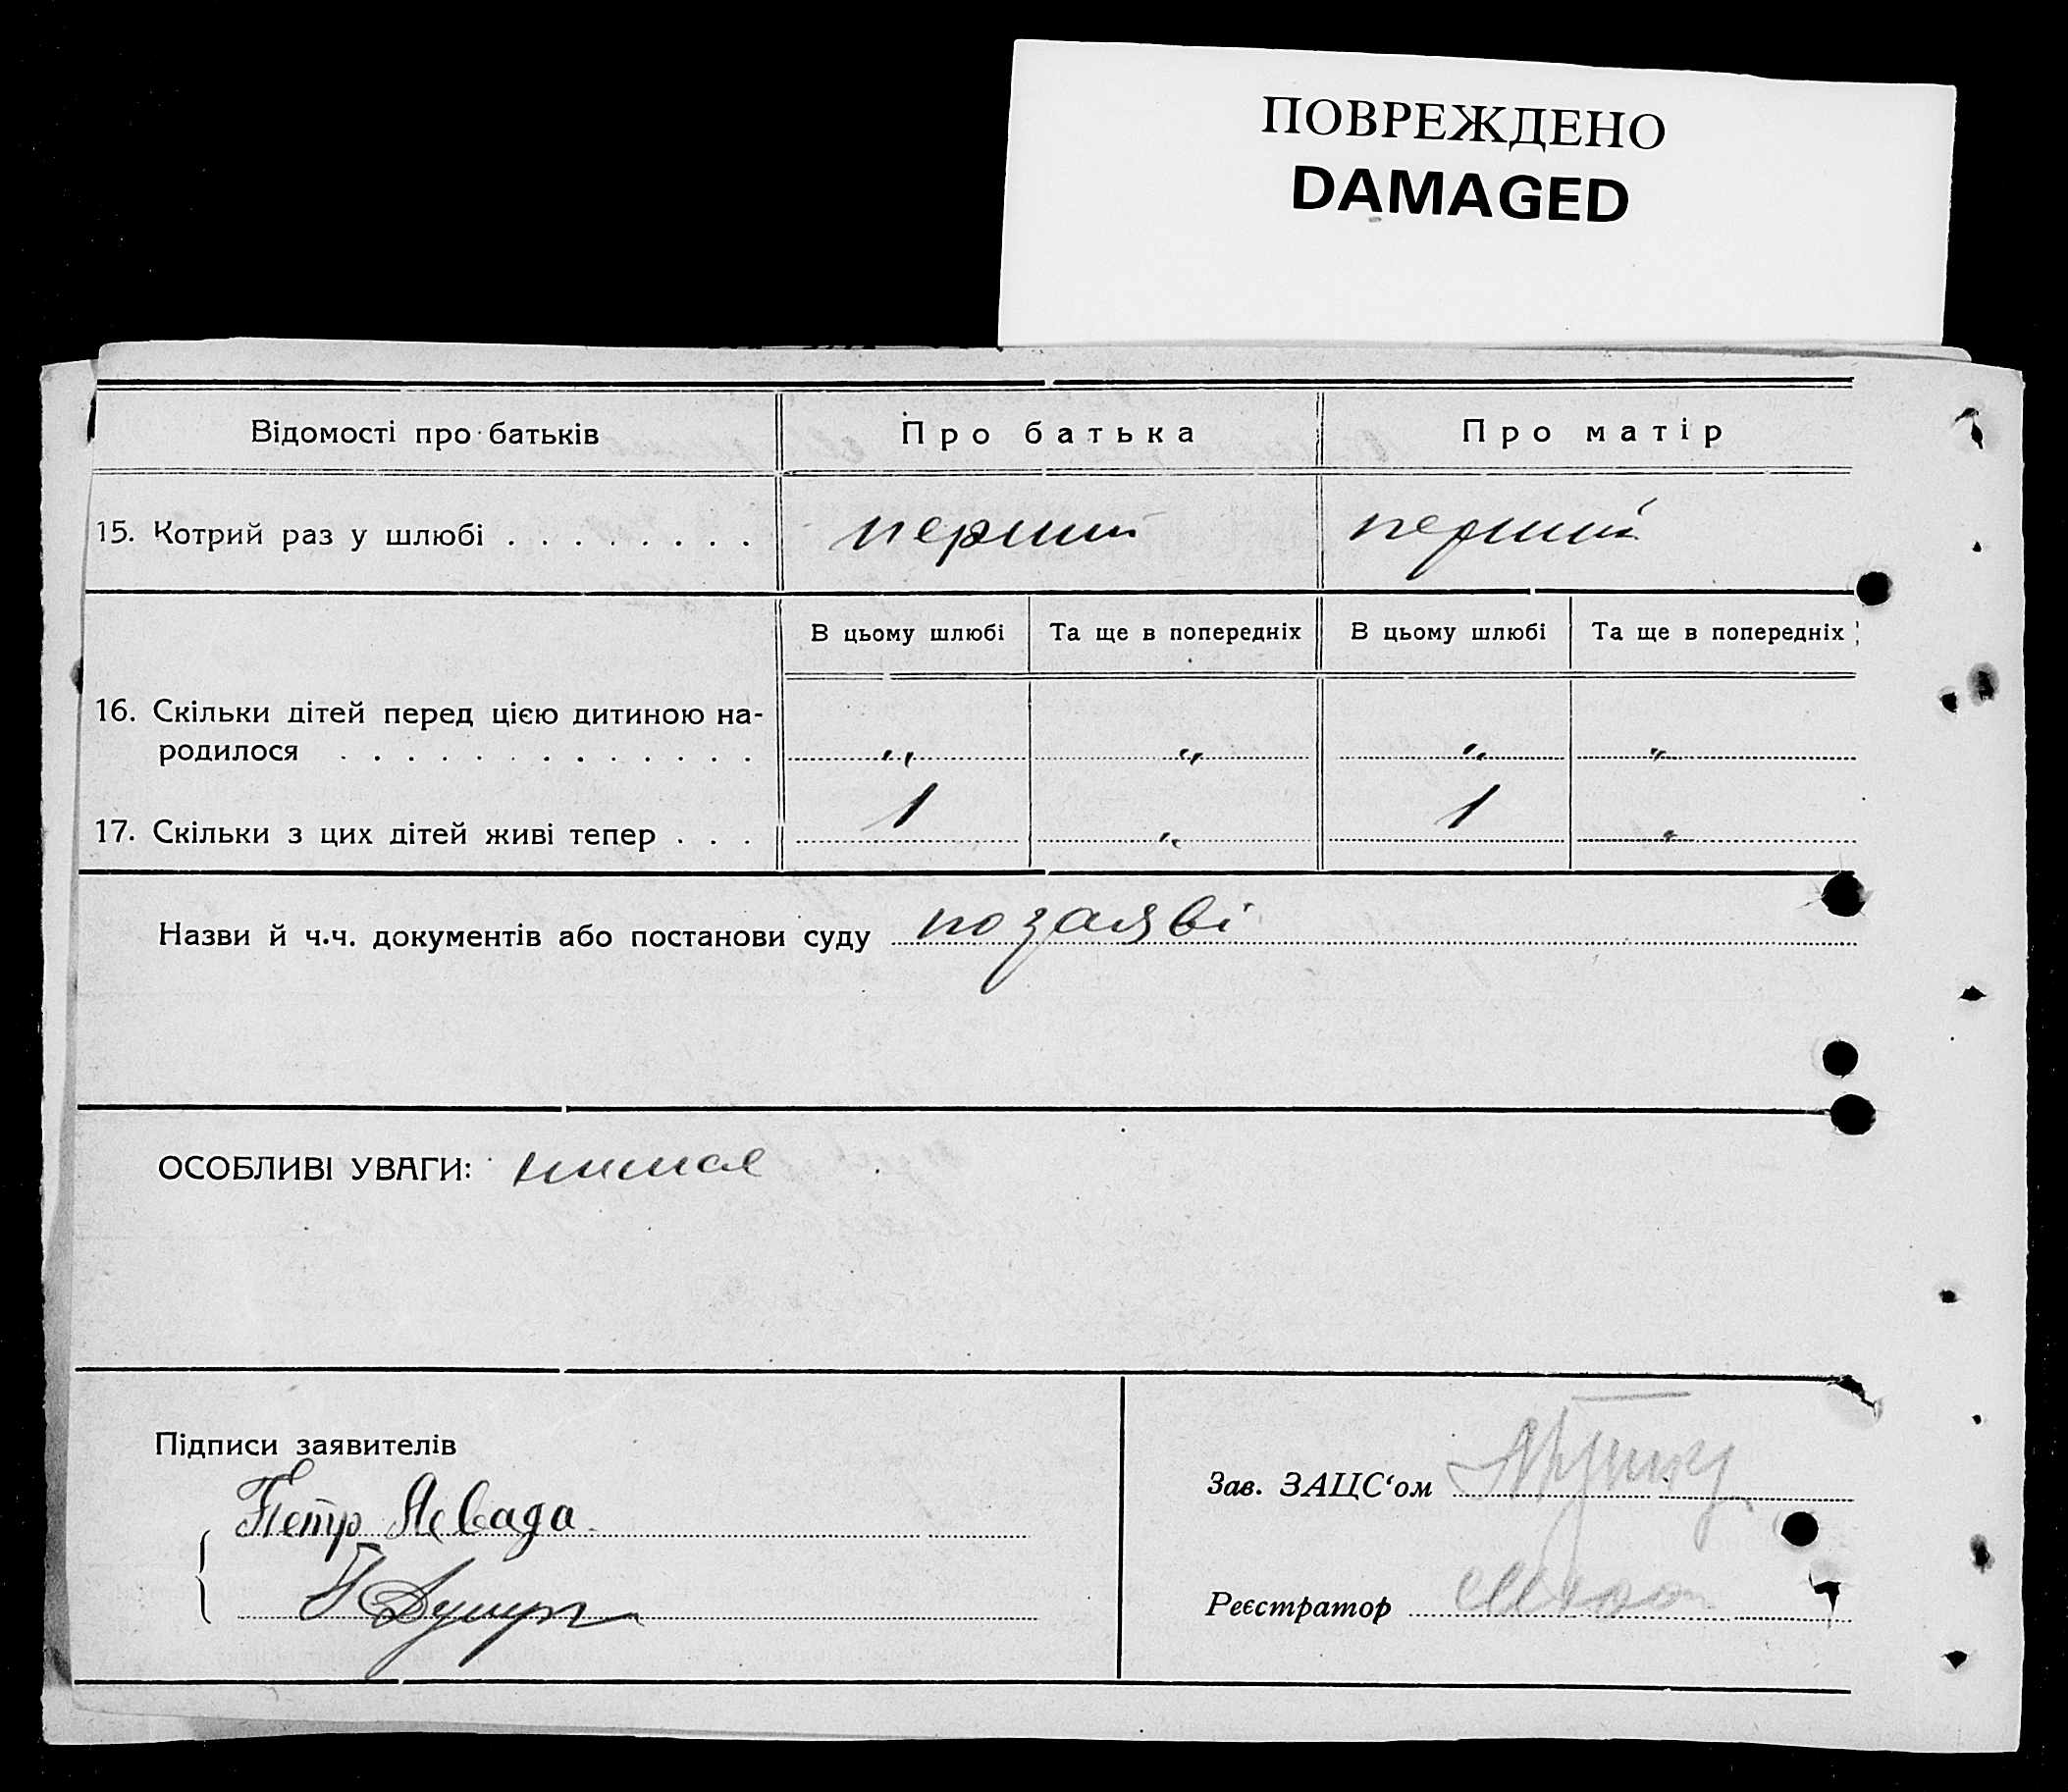 ПОВРЕЖДЕНО
DAMAGED
Відомості про батьків
Про батька
Про матір
15. Котрий раз у шлюбі . . . . . . . .
перший
перший
В цьому шлюбі
Та ще в попередніх
В цьому шлюбі
Та ще в попередніх
16. Скільки дітей перед цією дитиною на-
родилося . . . . . . . . . . . . .
„ „ „ „
17. Скільки з цих дітей живі тепер . . .
1 „ 1 „
Назви й ч.ч. документів або постанови суду по заяві
ОСОБЛИВІ УВАГИ:
Підписи заявителів
Петр
Зав. ЗАЦС‘ом
Реєстратор